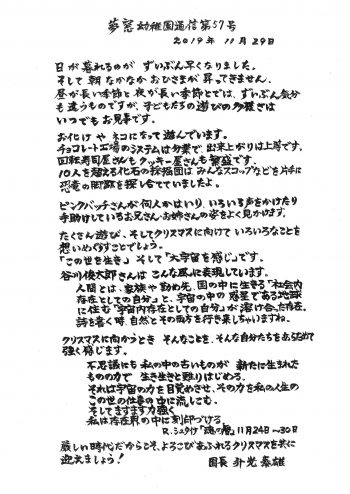 夢窓幼稚園通信第57号
2019年 11月 29日
日が暮れるのが ずいぶん早くなりました。
そして 朝 なかなか おひさまが 昇ってきません。
昼が長い季節と 夜が長い季節とでは、ずいぶん気分
も違うものですが、子どもたちの遊びの多様さは
いつでもお見事です。
お化けやネコになって遊んでいます。
チョコレート工場のシステムは分業で、出来上がりは上等です。
回転寿司屋さんもクッキー屋さんも繁盛です。
10人を超える化石の採掘団は みんなスコップなどを片手に
恐竜の を探し合てていましたよ。
ピンクバッチさんが何人かはいり、いろいろ声をかけたり
手助けしているお兄さんお姉さんの姿をよく見かけます。
たくさん遊び、そしてクリスマスに向けて いろいろなことを
想いめぐらすことでしょう。
「この世を生き」そして「大宇宙を感じ」です。
谷川俊太郎さんは こんな風に表現しています。
人間とは、家族や勤め先、国の中に生きる「社会内
存在としての自分」と、宇宙の中の惑星である地球
に住む「宇宙内存在としての自分」が溶け合った存在。
詩を書く時、自然とその両方を行き来しちゃいますね。
クリスマスに向かうとき そんなことを、そんな自分たちをあらためて
強く感じます。
不思議にも 私の中の古いものが 新たに生まれた
ものの力で 生き生きと甦りはじめる。
それは宇宙の力を目覚めさせ、その力を私の人生の
この世の仕事の中に流しこむ。
そしてますます力強く
私は存在界の中に刻印づける。
R.シュタイナー「魂の暦」11月24日〜30日
厳しい時代だからこそ、よろこびあふれるクリスマスを共に
迎えましょう！
園長 泰雄